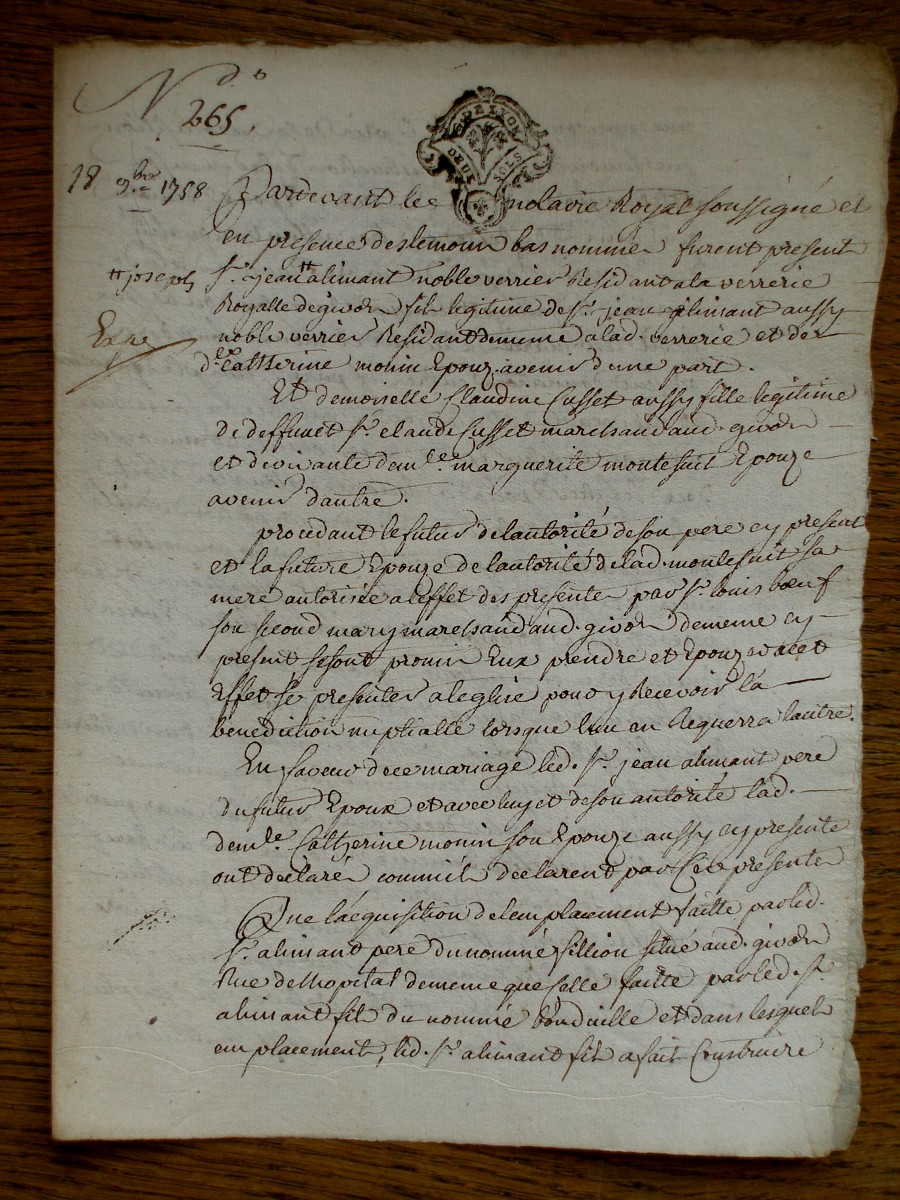 N.do
265.
GNE. LYON
DEUX SOLS
18 9.bre 1758
Pardevant le notaire Royal soussigné et
en presence des temoins bas nommés furent present
#joseph
s.r jean # alimant noble verrier Residant a la verrerie
Royalle de givors fils legitime de s.r jean alimant aussy
Exp.e
noble verrier Residant de meme a lad. verrerie et de
d.lle Catherine monin Epoux avenir d'une part.
Et demoiselle Claudine Cusset aussy fille legitime
de deffunct s.r claude Cusset marchand aud. givors
et de vivante dem.lle marguerite montefuit Epouze
avenir d'autre.
procedant le futur de lautorité de son pere cy present
et la future Epouze de lautorité de lad. montefuit sa
mere autorisée a l'effet des presentes par s.r louis bœuf
son second mary marchand aud. givors de meme cy
present se sont promis Eux prendre et Epouzer a cet
Effet se presenter a leglise pour y Recevoir la
benediction nuptialle lorsque l'un en Requerra lautre.
En faveur de ce mariage led. s.r jean alimant pere
du futur Epoux et avec luy et de son autorité lad.
dem.lle Catherine monin son Epouze aussy cy presente
ont déclaré comm'ils declarent par Ces presentes
Que lacquisition de lemplacement faitte par led.
s.r alimant pere du nommé fillion situé aud. givors
Rue de lhopital de meme que celle faitte par led. s.r
alimant fils du nommé bonduille et dans lesquels
emplacement, led. s.r alimant fils a fait Construire